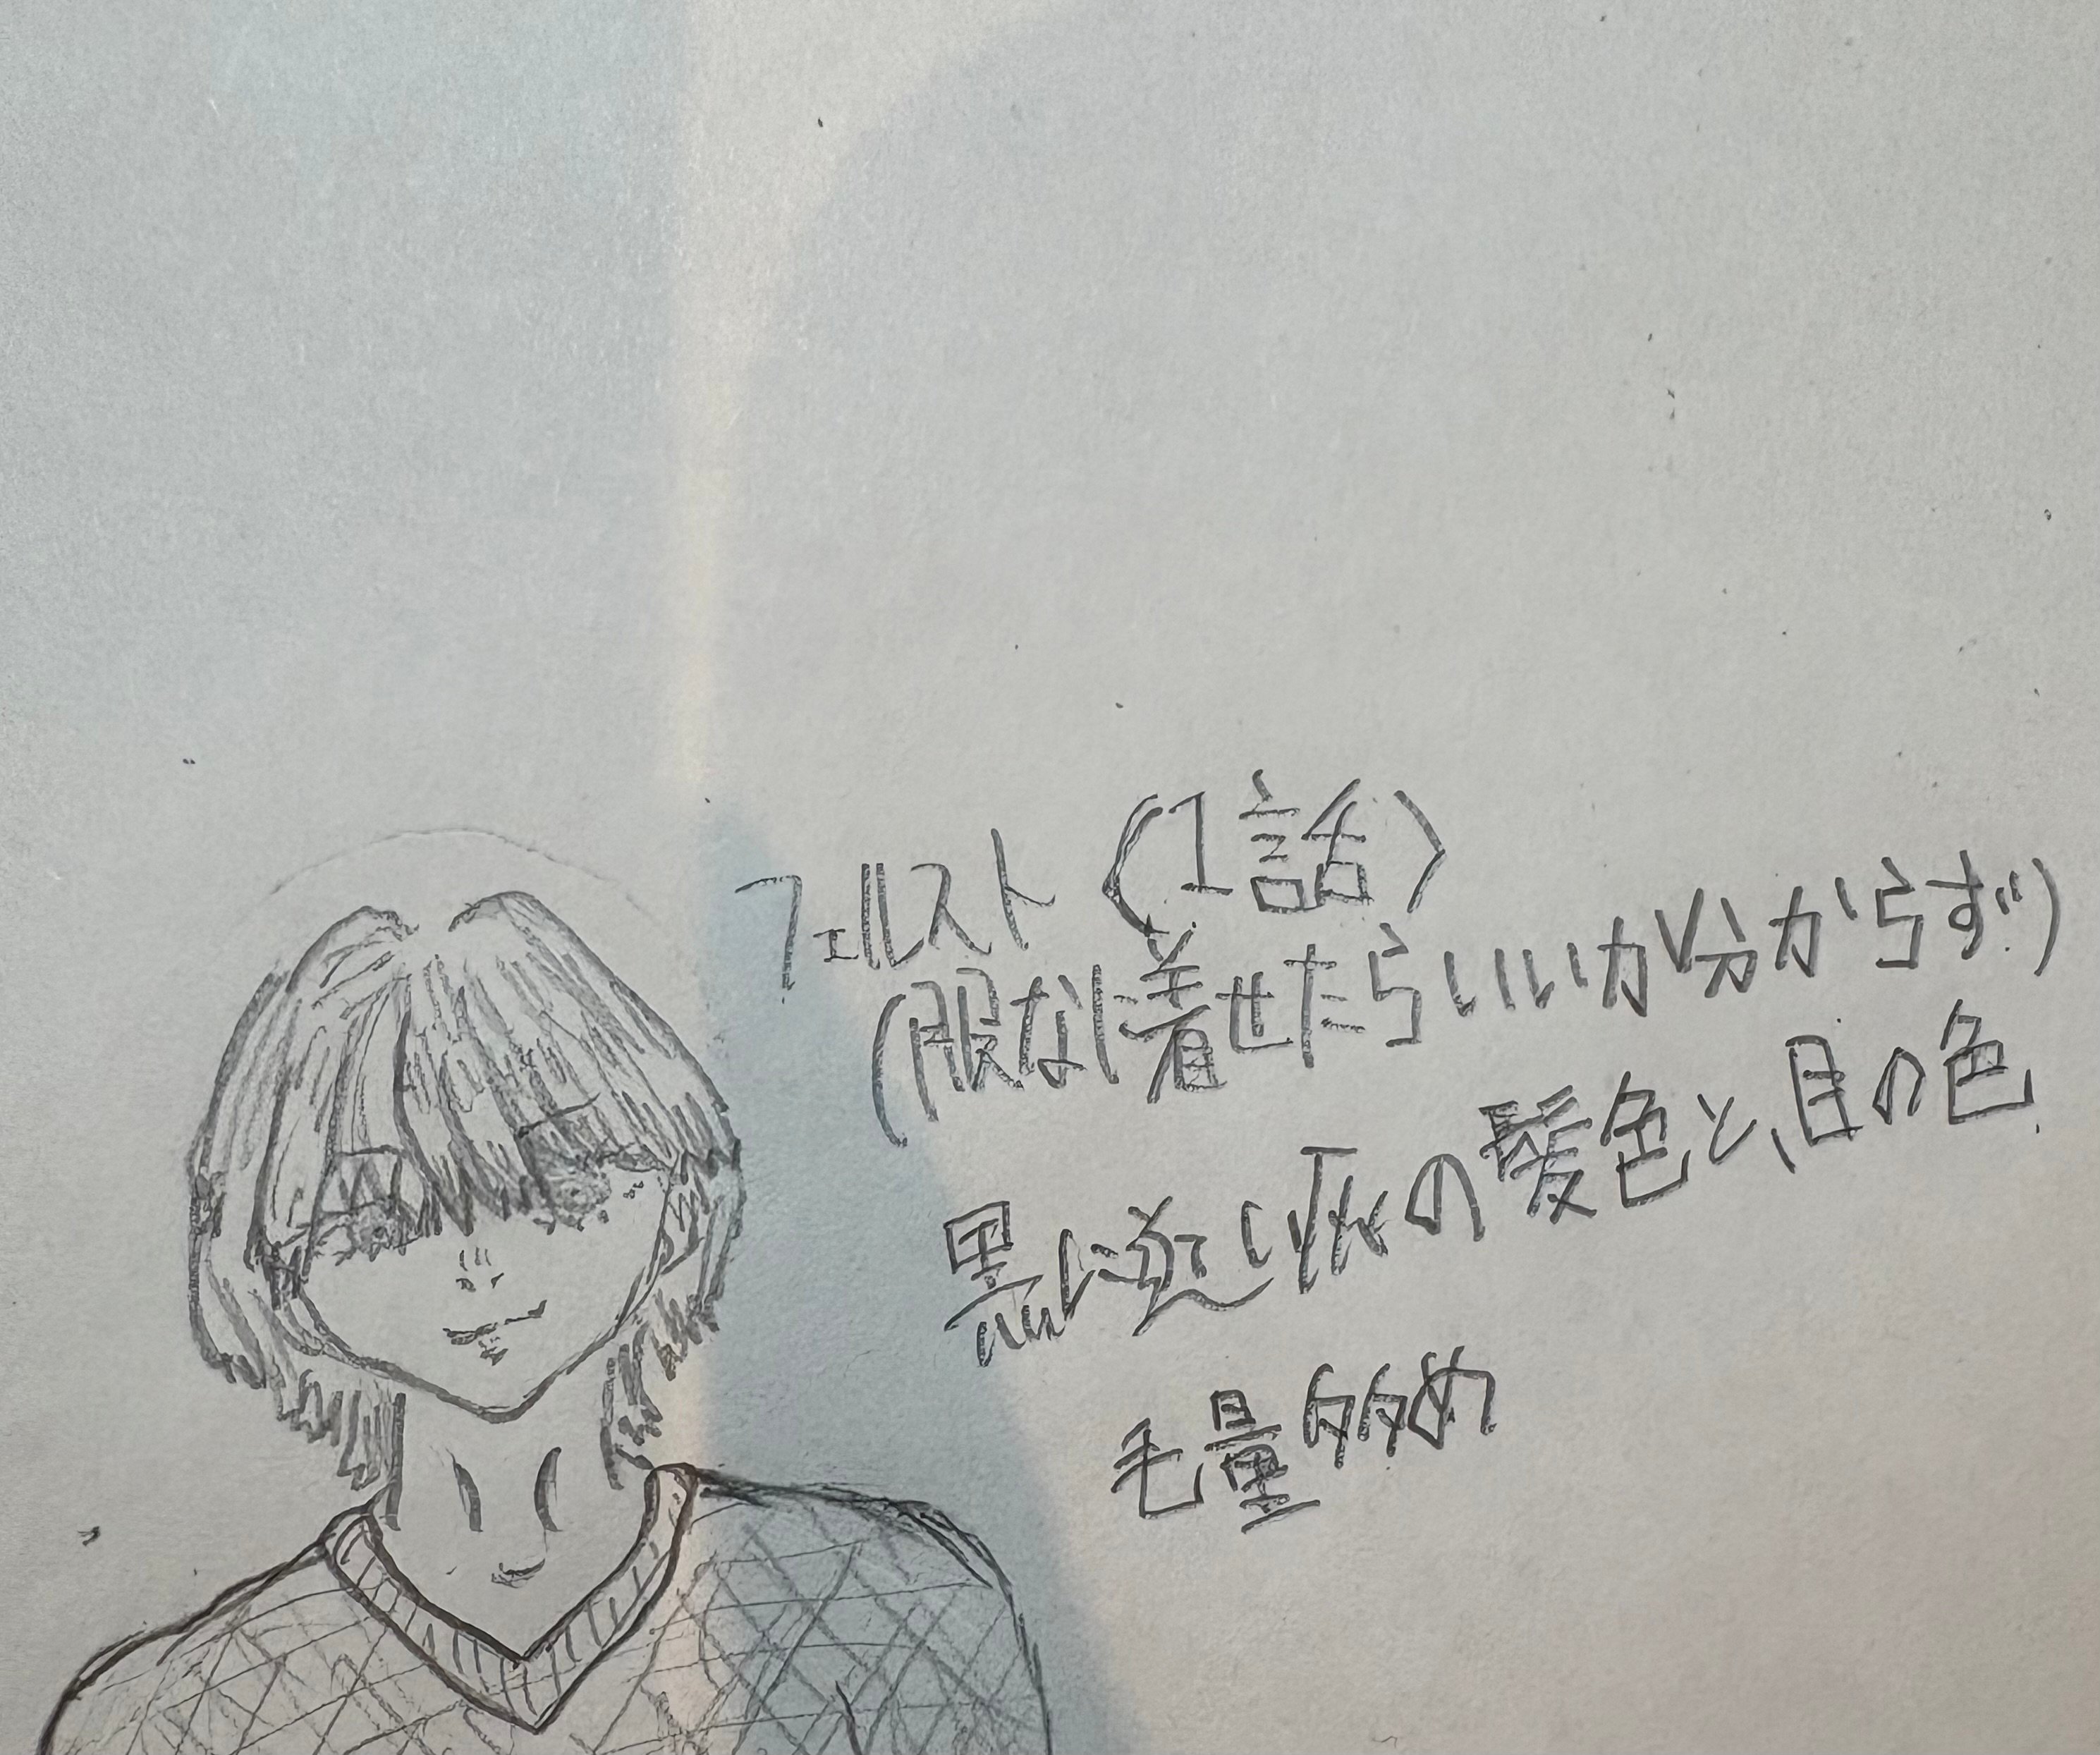 フェルスト（1話）
（服なに着せたらいいか分からず）
黒に近い灰の髪色と、目の色
毛量多め